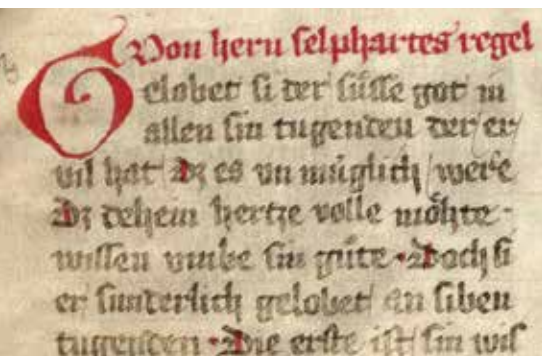 Von hern selphartes regel
Gelobet si der süsse got in
allen sin tugenden der er
vil hat dz es vn muglich were
dz dehein hertze volle möhte
wissen vmbe sin güte · Doch si
er sunderlich gelobet an siben
tugenden · Die erste ist sin wis